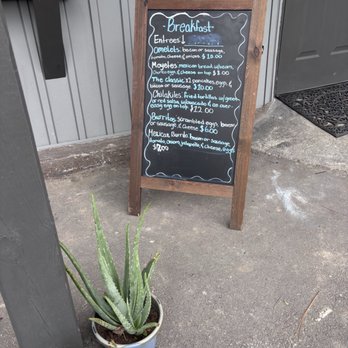 Breakfast
Entrees
Omelets: bacon or sausage,
tomato, cheese & onions $10.00
Mogotes mexican bread w/ beans,
& cheese on top $8.00
The classic x2 pancakes, eggs, &
bacon or sausage $10.00
Chilakiles fried tortillas w/ green
or red salsa, w/avocado & an over
easy egg on top $12.00
Burritos scrambled eggs, bacon
or sausage & cheese $6.00
Mexican Burrito bacon or sausage,
tomato, onion, jalapeño, & cheese, eggs